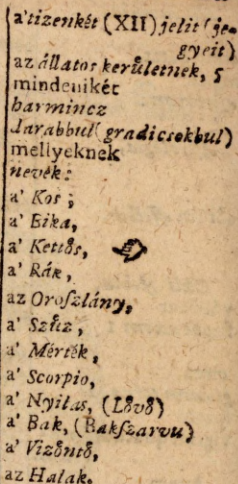 a' tizenkét (XII) jelit (je-
gyeit)
az állatos kerůletnek, s
mindeniket
harmincz
darabbul (gradicsokbul)
mellyeknek
nevék:
a' Kos;
a' Bika,
a' Kettős,
a' Rák,
az Oroſzlány,
a' Szűz,
a' Mérték,
a' Scorpio,
a' Nyilas, (Lővő)
a' Bak, (Bakſzarvu)
a' Vizőntő,
az Halak.